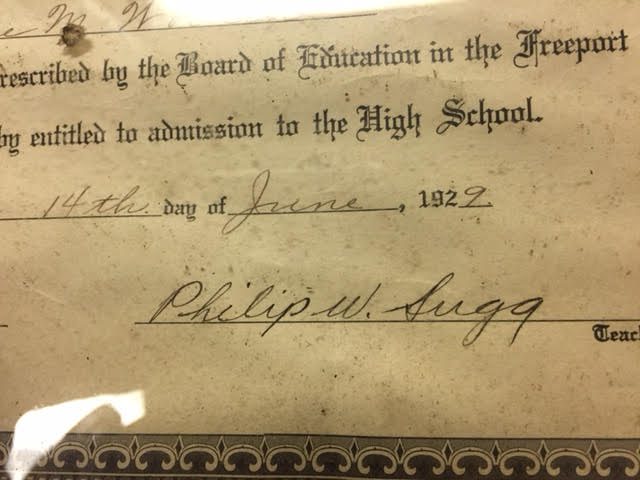 e M. W
rescribed by the Board of Education in the Freeport
by entitled to admission to the High School.
14th. day of June, 1929.
Philip W. Sugg
Teac